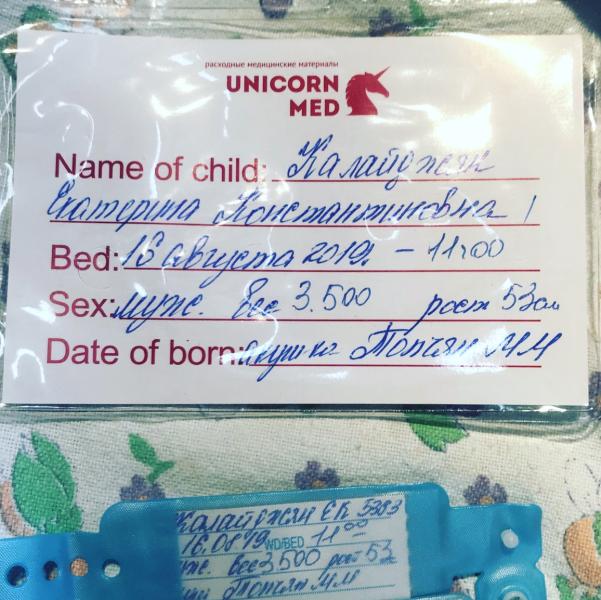 расходные медицинские материалы
UNICORN
MED
Name of child: Калайджян
Екатерина Константиновна 1
Bed: 16 августа 2019г. - 11:00
Sex: муж. Вес 3.500 рост 53см
Date of born: Топчян М М
Калайджян ЕК 5383
16.08 19 WD/BED 11 00
вес 3500 рост 53
Топчян ММ